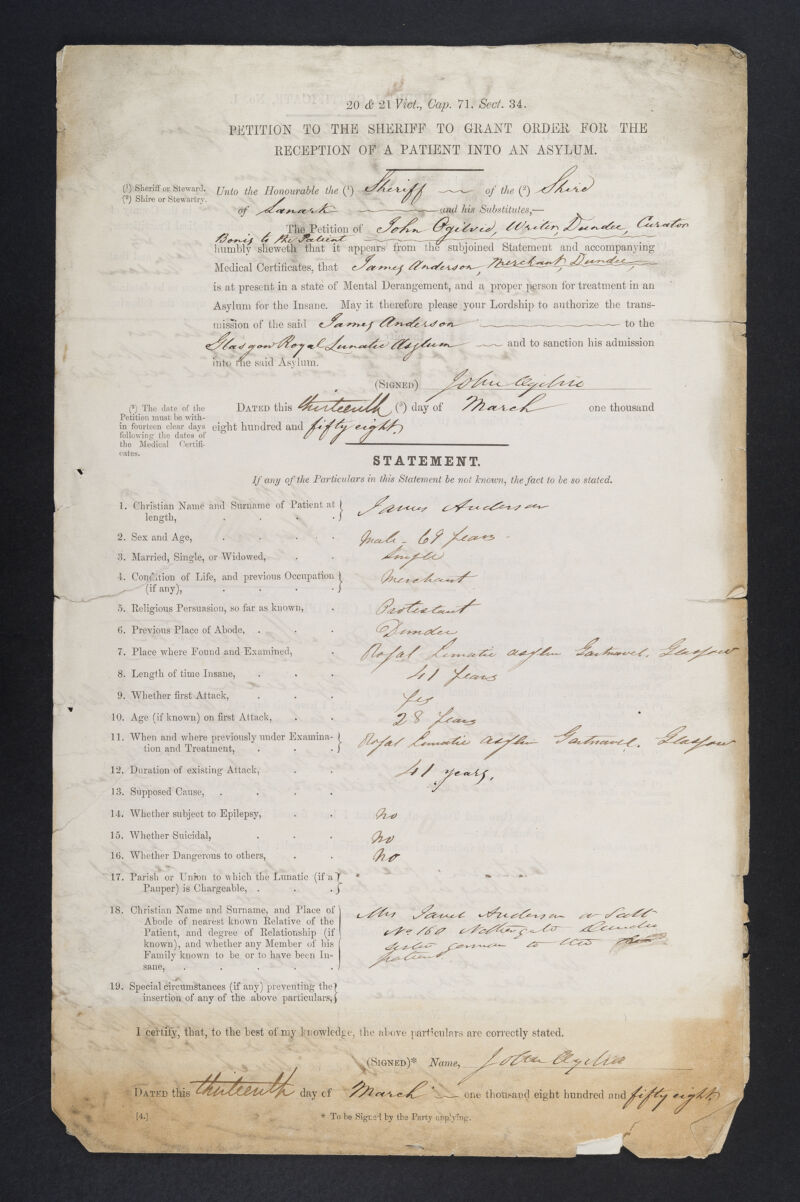 20 & 21 Vict., Cap. 71. Sect. 34.
PETITION TO THE SHERIFF TO GRANT ORDER FOR THE
RECEPTION OF A PATIENT INTO AN ASYLUM.
(¹) Sheriff or Steward.
(²) Shire or Stewartry.
Unto the Honourable the (¹) Sheriff of the (²) Shire
of Lanark and his Substitutes,—
The Petition of John Ogilvie, Writer, Dundee, Curator
Bonis to the Patient
humbly sheweth that it appears from the subjoined Statement and accompanying
Medical Certificates, that James Anderson, Merchant, Dundee,
is at present in a state of Mental Derangement, and a proper person for treatment in an
Asylum for the Insane. May it therefore please your Lordship to authorize the trans-
mission of the said James Anderson to the
Glasgow Royal Lunatic Asylum and to sanction his admission
into the said Asylum.
(SIGNED) John Ogilvie
(³) The date of the
Petition must be with-
in fourteen clear days
following the dates of
the Medical Certifi-
cates.
DATED this thirteenth (³) day of March one thousand
eight hundred and fifty eight
STATEMENT.
If any of the Particulars in this Statement be not known, the fact to be so stated.
1. Christian Name and Surname of Patient at
length, James Anderson
2. Sex and Age, Male - 69 years
3. Married, Single, or Widowed, Single
4. Condition of Life, and previous Occupation
(if any), Merchant
5. Religious Persuasion, so far as known, Protestant
6. Previous Place of Abode, Dundee
7. Place where Found and Examined, Royal Lunatic asylum Gartnavel. Glasgow
8. Length of time Insane, 41 years
9. Whether first Attack, yes
10. Age (if known) on first Attack, 28 years
11. When and where previously under Examina-
tion and Treatment, Royal Lunatic asylum Gartnavel. Glasgow
12. Duration of existing Attack, 41 years.
13. Supposed Cause,
14. Whether subject to Epilepsy, no
15. Whether Suicidal, no
16. Whether Dangerous to others, no
17. Parish or Union to which the Lunatic (if a
Pauper) is Chargeable,
18. Christian Name and Surname, and Place of
Abode of nearest known Relative of the
Patient, and degree of Relationship (if
known), and whether any Member of his
Family known to be or to have been In-
sane,
Mrs Janet Anderson or Scott
No 160 Nethergate Dundee
sister german to the
patient
19. Special circumstances (if any) preventing the
insertion of any of the above particulars,
I certify, that, to the best of my knowledge, the above particulars are correctly stated.
(SIGNED)* Name, John Ogilvie
DATED this thirteenth day of March one thousand eight hundred and fifty eight
[4.]
* To be Signed by the Party applying.